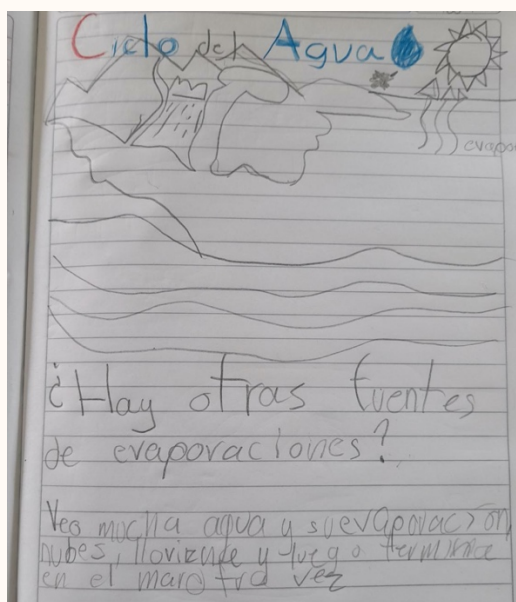 Ciclo del Agua
evapo
¿Hay otras fuentes
de evaporaciones?
Veo mucha agua y su evaporación,
nubes, lloviznde y luego termina
en el mar otra vez